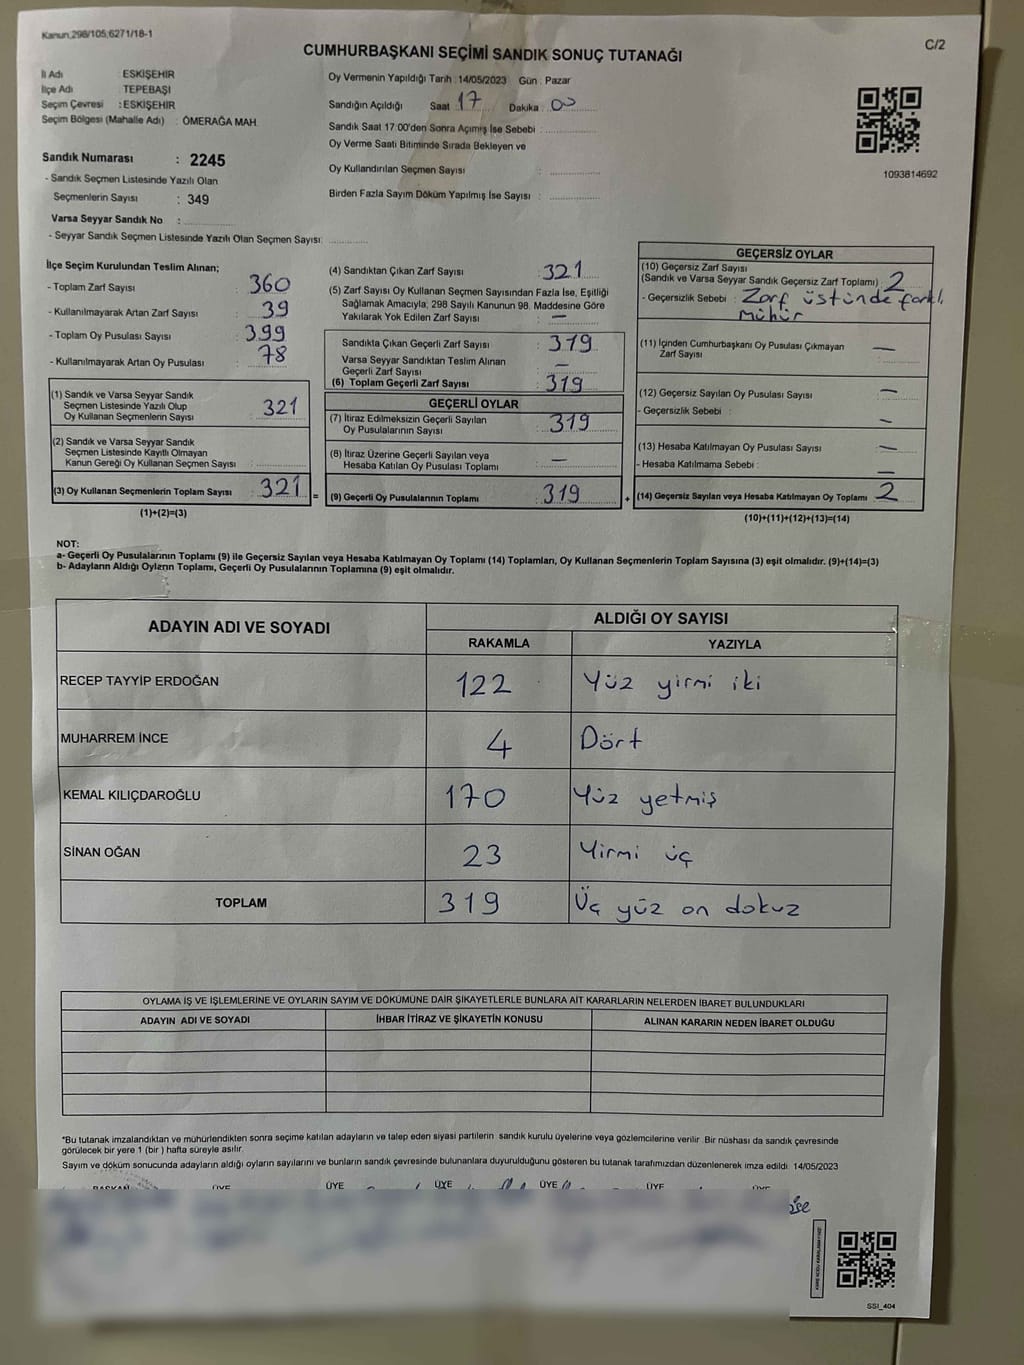 Kanun;298/105;6271/18-1
C/2
CUMHURBAŞKANI SEÇİMİ SANDIK SONUÇ TUTANAĞI
İl Adı : ESKİŞEHİR
İlçe Adı : TEPEBAŞI
Seçim Çevresi : ESKİŞEHİR
Seçim Bölgesi (Mahalle Adı) : ÖMERAĞA MAH.
Sandık Numarası : 2245
- Sandık Seçmen Listesinde Yazılı Olan
Seçmenlerin Sayısı : 349
Varsa Seyyar Sandık No :
- Seyyar Sandık Seçmen Listesinde Yazılı Olan Seçmen Sayısı:
Oy Vermenin Yapıldığı Tarih : 14/05/2023 Gün : Pazar
Sandığın Açıldığı Saat 17 Dakika : 00
Sandık Saat 17:00'den Sonra Açımış İse Sebebi :
Oy Verme Saati Bitiminde Sırada Bekleyen ve
Oy Kullandırılan Seçmen Sayısı :
Birden Fazla Sayım Döküm Yapılmış İse Sayısı :
1093814692
İlçe Seçim Kurulundan Teslim Alınan;
- Toplam Zarf Sayısı : 360
- Kullanılmayarak Artan Zarf Sayısı : 39
- Toplam Oy Pusulası Sayısı : 399
- Kullanılmayarak Artan Oy Pusulası : 78
(1) Sandık ve Varsa Seyyar Sandık
Seçmen Listesinde Yazılı Olup
Oy Kullanan Seçmenlerin Sayısı : 321
(2) Sandık ve Varsa Seyyar Sandık
Seçmen Listesinde Kayıtlı Olmayan
Kanun Gereği Oy Kullanan Seçmen Sayısı :
(3) Oy Kullanan Seçmenlerin Toplam Sayısı : 321
(1)+(2)=(3)
(4) Sandıktan Çıkan Zarf Sayısı : 321
(5) Zarf Sayısı Oy Kullanan Seçmen Sayısından Fazla İse, Eşitliği
Sağlamak Amacıyla; 298 Sayılı Kanunun 98. Maddesine Göre
Yakılarak Yok Edilen Zarf Sayısı : —
Sandıkta Çıkan Geçerli Zarf Sayısı : 319
Varsa Seyyar Sandıktan Teslim Alınan
Geçerli Zarf Sayısı : —
(6) Toplam Geçerli Zarf Sayısı : 319
GEÇERLİ OYLAR
(7) İtiraz Edilmeksizin Geçerli Sayılan
Oy Pusulalarının Sayısı : 319
(8) İtiraz Üzerine Geçerli Sayılan veya
Hesaba Katılan Oy Pusulası Toplamı : —
= (9) Geçerli Oy Pusulalarının Toplamı : 319 +
GEÇERSİZ OYLAR
(10) Geçersiz Zarf Sayısı
(Sandık ve Varsa Seyyar Sandık Geçersiz Zarf Toplamı) : 2
- Geçersizlik Sebebi : Zarf üstünde farklı
mühür
(11) İçinden Cumhurbaşkanı Oy Pusulası Çıkmayan
Zarf Sayısı —
(12) Geçersiz Sayılan Oy Pusulası Sayısı —
- Geçersizlik Sebebi : —
(13) Hesaba Katılmayan Oy Pusulası Sayısı —
- Hesaba Katılmama Sebebi : —
(14) Geçersiz Sayılan veya Hesaba Katılmayan Oy Toplamı 2
(10)+(11)+(12)+(13)=(14)
NOT:
a- Geçerli Oy Pusulalarının Toplamı (9) ile Geçersiz Sayılan veya Hesaba Katılmayan Oy Toplamı (14) Toplamları, Oy Kullanan Seçmenlerin Toplam Sayısına (3) eşit olmalıdır. (9)+(14)=(3)
b- Adayların Aldığı Oyların Toplamı, Geçerli Oy Pusulalarının Toplamına (9) eşit olmalıdır.
ADAYIN ADI VE SOYADI
ALDIĞI OY SAYISI
RAKAMLA YAZIYLA
RECEP TAYYİP ERDOĞAN 122 Yüz yirmi iki
MUHARREM İNCE 4 Dört
KEMAL KILIÇDAROĞLU 170 Yüz yetmiş
SİNAN OĞAN 23 Yirmi üç
TOPLAM 319 Üç yüz on dokuz
OYLAMA İŞ VE İŞLEMLERİNE VE OYLARIN SAYIM VE DÖKÜMÜNE DAİR ŞİKAYETLERLE BUNLARA AİT KARARLARIN NELERDEN İBARET BULUNDUKLARI
ADAYIN ADI VE SOYADI İHBAR İTİRAZ VE ŞİKAYETİN KONUSU ALINAN KARARIN NEDEN İBARET OLDUĞU
*Bu tutanak imzalandıktan ve mühürlendikten sonra seçime katılan adayların ve talep eden siyasi partilerin sandık kurulu üyelerine veya gözlemcilerine verilir. Bir nüshası da sandık çevresinde
görülecek bir yere 1 (bir) hafta süreyle asılır.
Sayım ve döküm sonucunda adayların aldığı oyların sayılarını ve bunların sandık çevresinde bulunanlara duyurulduğunu gösteren bu tutanak tarafımızdan düzenlenerek imza edildi. 14/05/2023
BAŞKAN ÜYE ÜYE ÜYE ÜYE ÜYE ÜYE
SSI_404